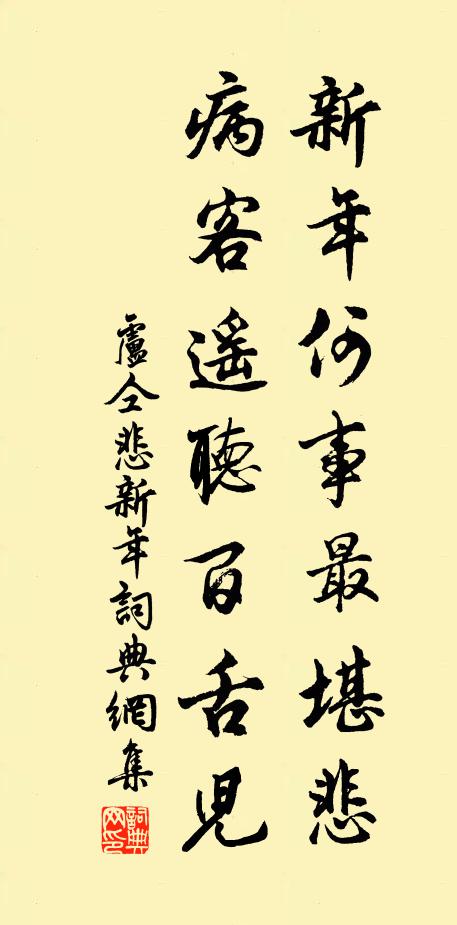 新年何事最堪悲
病客遥聽百舌兒
盧仝悲新年詞典網集
詞典网印